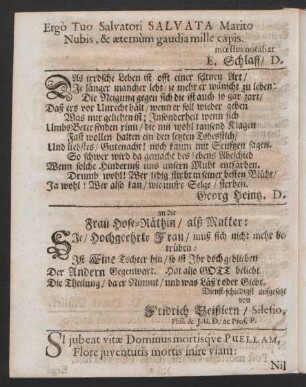 Ergò Tuo Salvatori SALVATA Marito
Nubis, & æternùm gaudia mille capis.
mœstus notabat
E. Schlaff / D.
DAs irrdsche Leben ist offt einer seltnen Art /
Je länger mancher lebt / je mehr er wündscht zu leben:
Die Neigung gegen sich die ist auch so gar zart /
Daß er's vor Unrecht hält / wenn er soll wieder geben
Was nur gelehnet ist; Insonderheit wenn sich
Umbs Bette finden rinn / die mit wohl tausend Klagen
Fast wollen halten ein den letzten Todesstich /
Und liebstes / Gutenacht! noch kaum mit Seufzen sagen.
So schwer wird da gemacht des Lebens Abschied
Wenn solche Hindernüß uns unsern Muht entfärben.
Drumb wohl! Wer selig stirbt in seiner besten Blüht /
Ja wohl! Wer also kan / wie unsre Selge / sterben.
Georg Heintz. D.
an die
Frau Hofe-Räthin / alß Mutter:
SIe / Hochgeehrte Frau / muß sich nicht mehr betrüben /
Ist Eine Tochter hin / so ist Ihr doch geblieben
Der Andern Gegenwart. Hat also GOTT beliebt
Die Theilung / da er Nimmt / und was Läst oder Giebt.
Dienst-schuldigst aufgesetzt
von
Fridrich Geißlern / Silesio,
Phil. & J.U.D. ac Prof. P.
SI jubeat vitæ Dominus mortisqve PUELLAM,
Flore juventutis mortis inire viam:
Nil